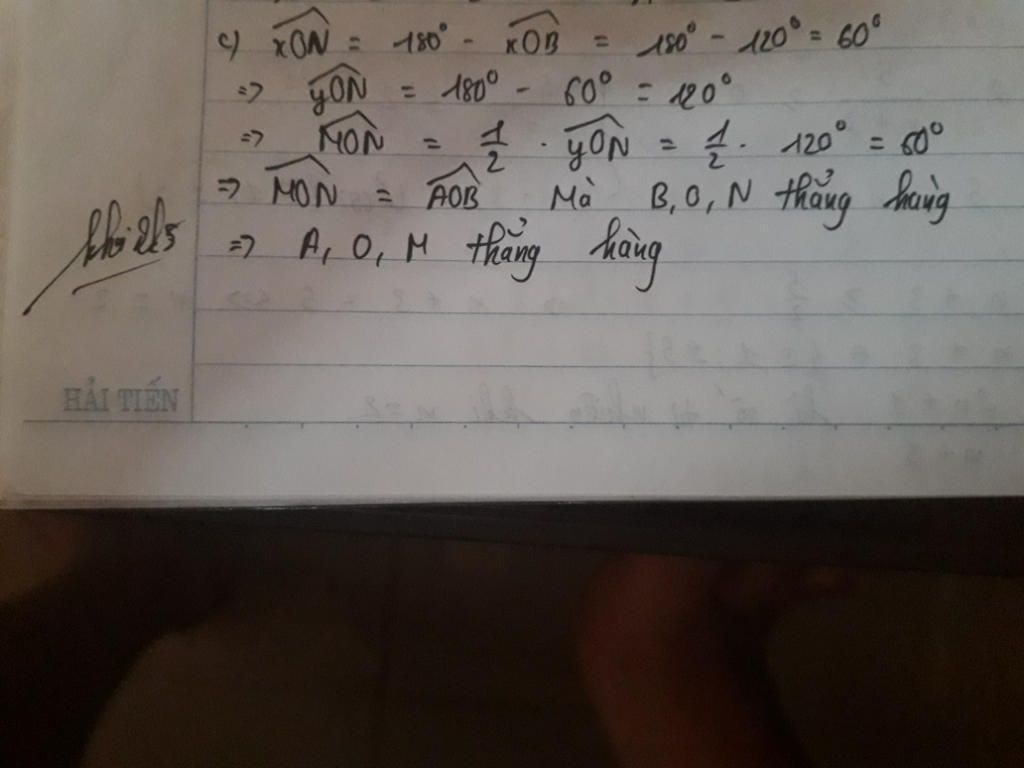 c) xON = 180° - xOB = 180° - 120° = 60°
=> yON = 180° - 60° = 120°
=> MON = 1/2 . yON = 1/2 . 120° = 60°
=> MON = AOB Mà B, O, N thẳng hàng
=> A, O, M thẳng hàng
HẢI TIẾN